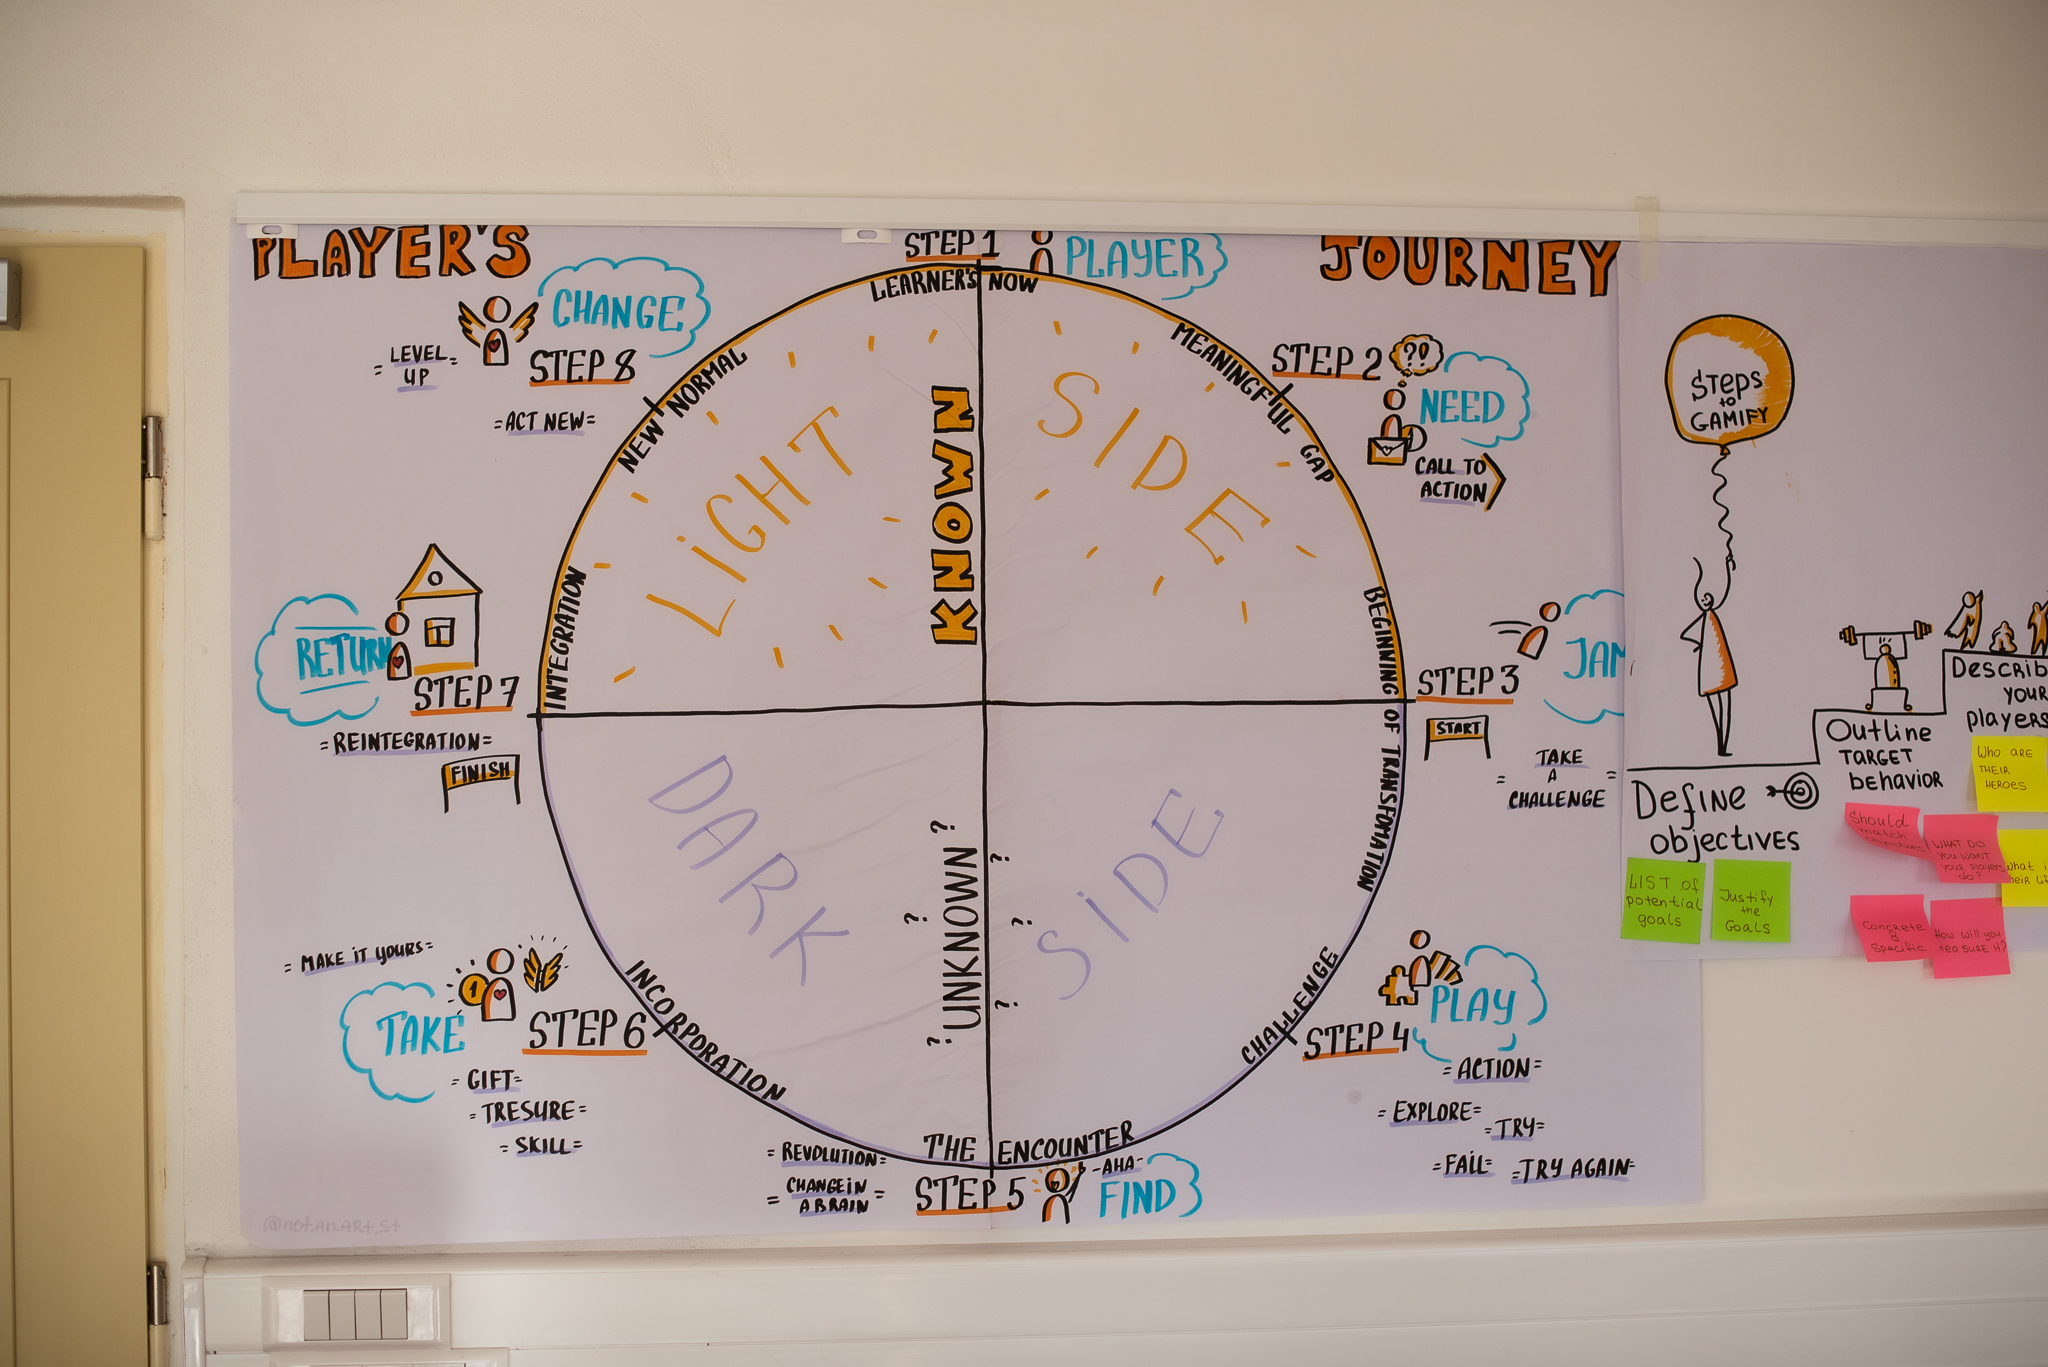 PLAYER'S
JOURNEY
STEP 1
PLAYER
LEARNER'S NOW
STEP 2
?!
NEED
CALL TO
ACTION
MEANINGFUL GAP
STEP 3
START
TAKE
A
CHALLENGE
BEGINNING OF TRANSFOMATION
STEP 4
PLAY
CHALLENGE
= ACTION =
= EXPLORE =
= TRY =
= FAIL =
= TRY AGAIN =
STEP 5
- AHA -
FIND
THE ENCOUNTER
= REVOLUTION =
= CHANGE IN =
A BRAIN
STEP 6
TAKE
= MAKE IT YOURS =
1
INCORPORATION
= GIFT =
= TRESURE =
= SKILL =
STEP 7
RETURN
INTEGRATION
= REINTEGRATION =
FINISH
STEP 8
CHANGE
= LEVEL =
UP
= ACT NEW =
NEW NORMAL
LIGHT SIDE
KNOWN
DARK SIDE
? UNKNOWN ?
? ? ? ?
@not.an.art.st
STEPS
to
GAMIFY
Define
objectives
LIST of
potential
goals
Justify
the
Goals
Outline
TARGET
behavior
Should
match
WHAT DO
YOU WANT
your players
do?
Concrete
&
Specific
How will you
measure it?
Describ
YOUR
players
Who ARE
THEIR
HEROES